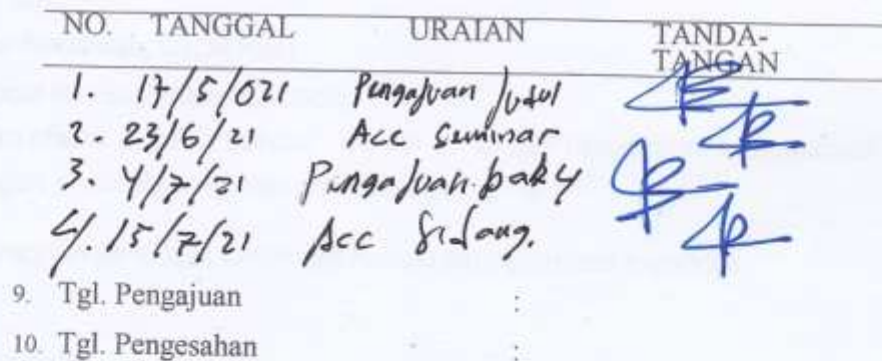 NO. TANGGAL URAIAN TANDA-
TANGAN
1. 17/5/021 Pengajuan Judul
2. 23/6/21 Acc Seminar
3. 4/7/21 Pengajuan bab 4
4. 15/7/21 Acc Sidang.
9. Tgl. Pengajuan :
10. Tgl. Pengesahan :